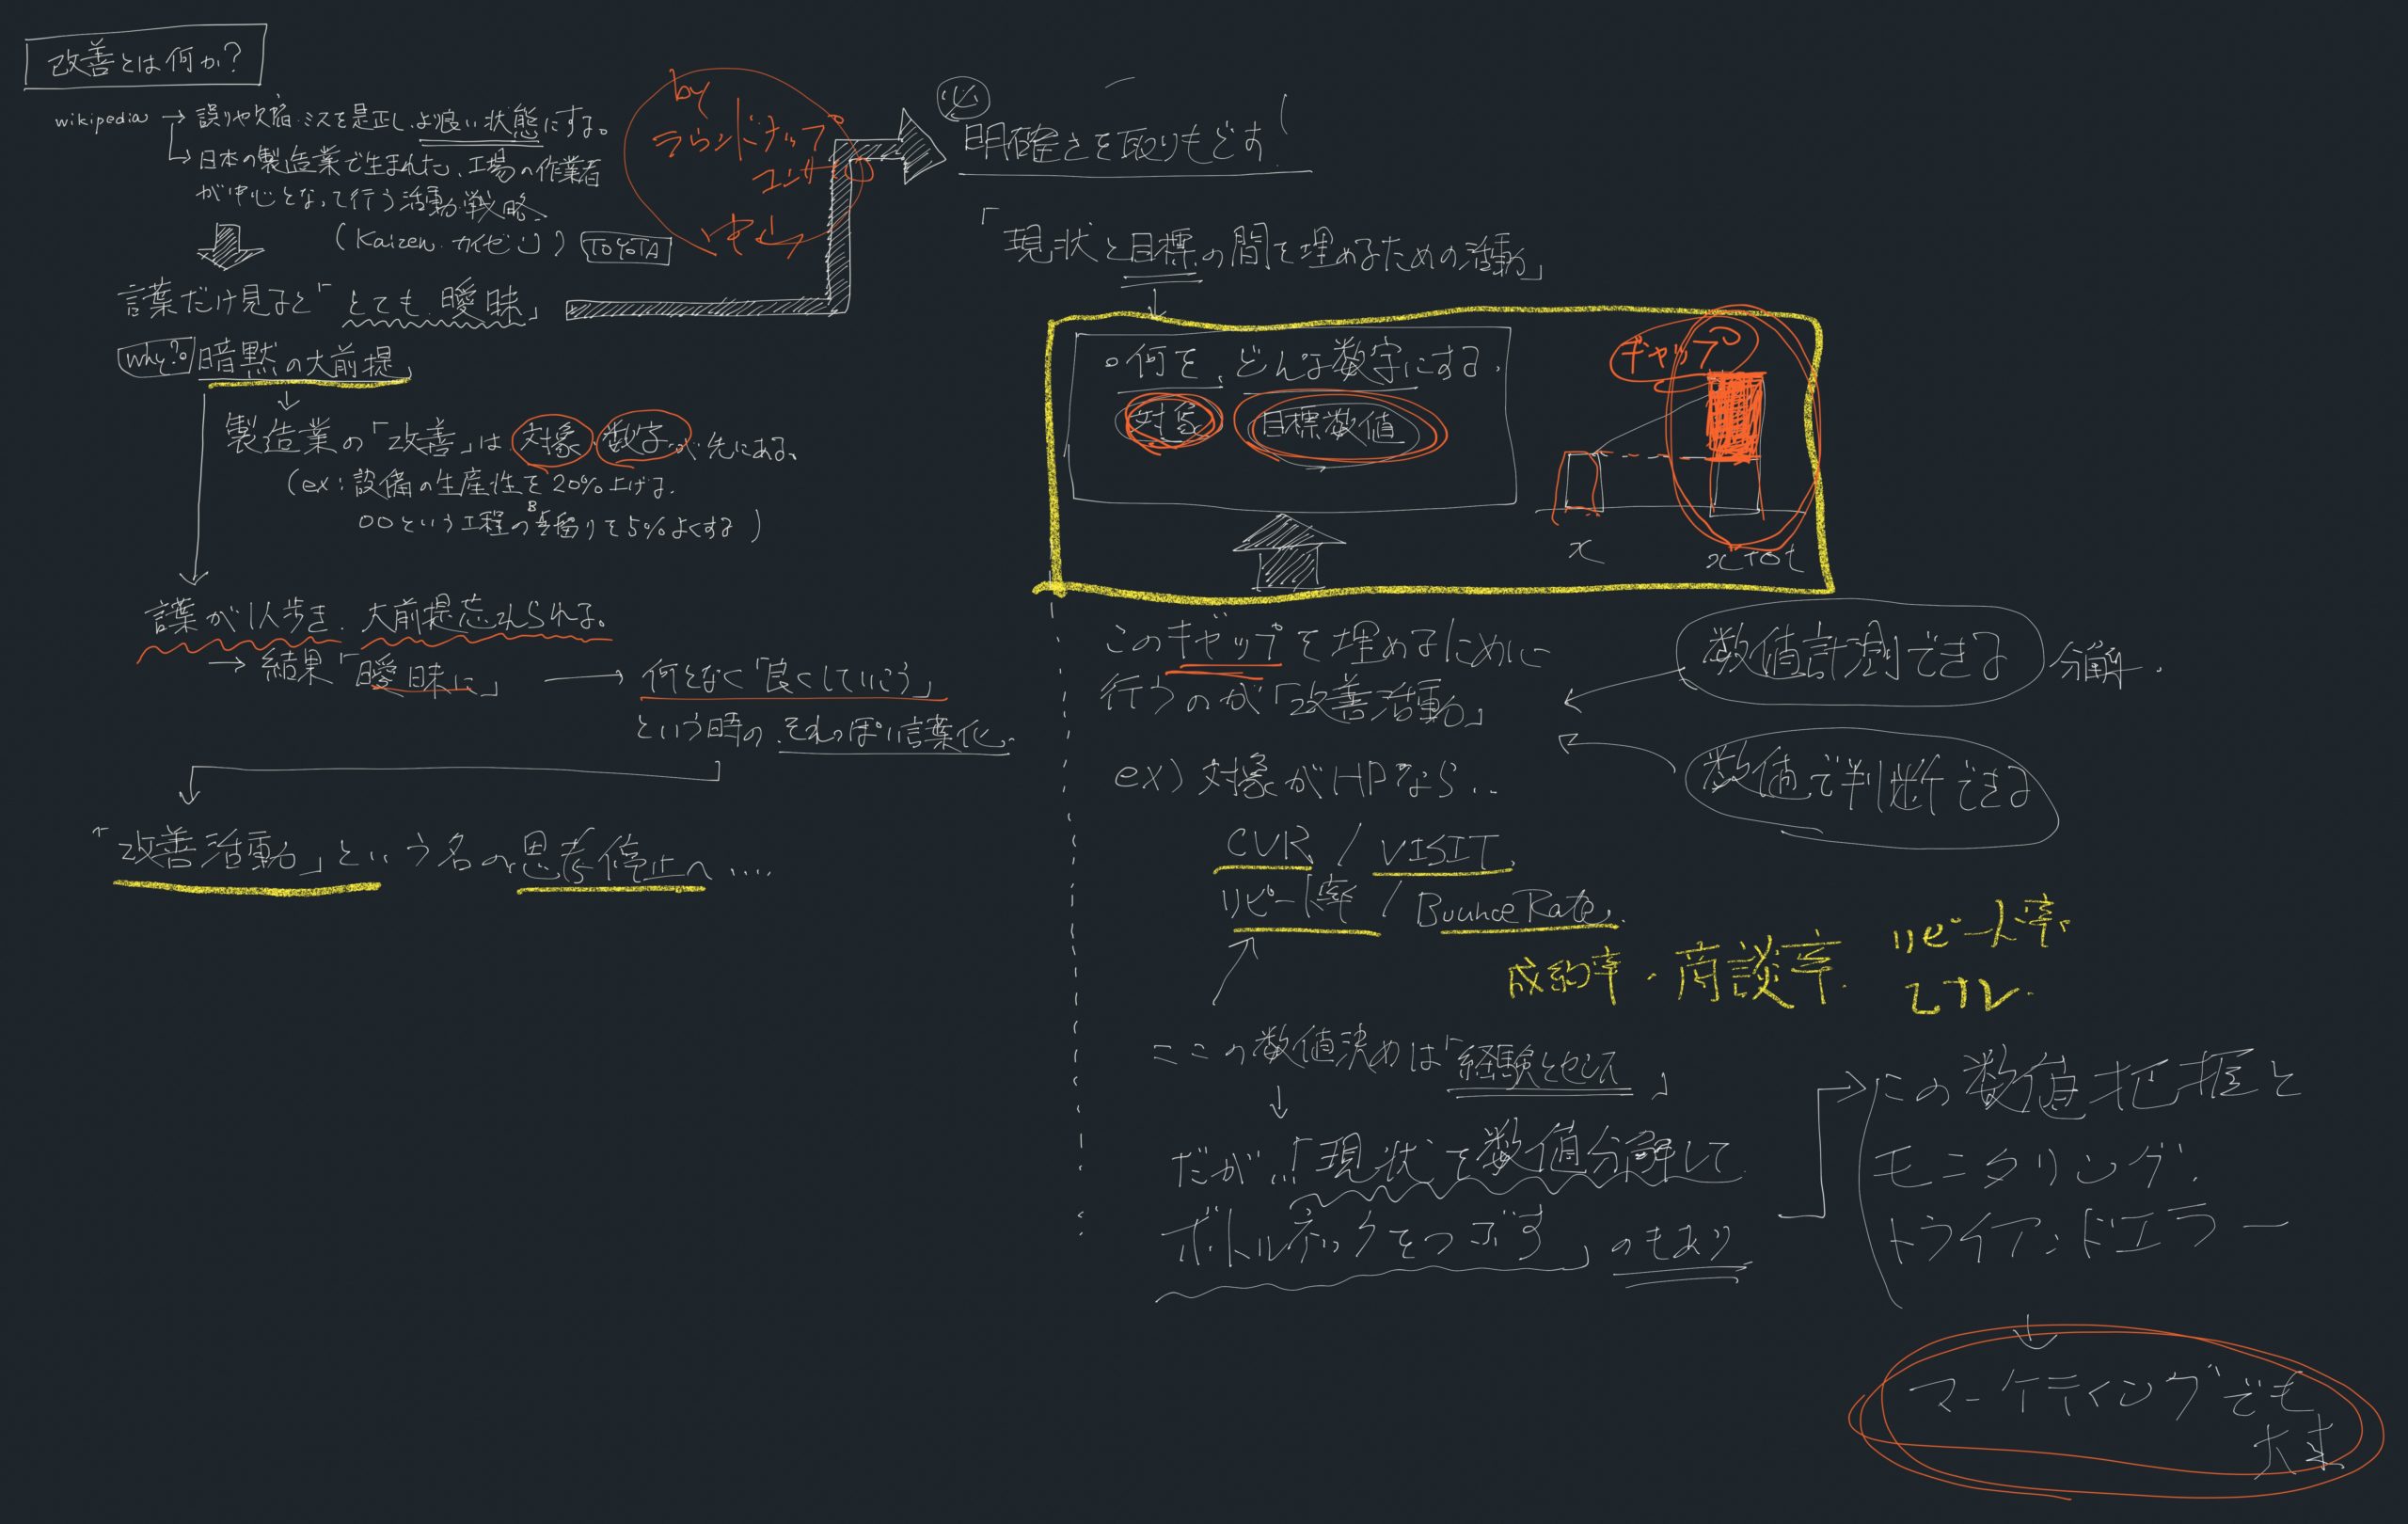 改善とは何か?
wikipedia → 誤りや欠陥、ミスを是正し、より良い状態にする。
日本の製造業で生まれた、工場の作業者
が中心となって行う活動・戦略、
(Kaizen、カイゼン) TOYOTA
言葉だけ見ると「とても曖昧」
why? 暗黙の大前提
製造業の「改善」は 対象 数字 が先にある。
(ex:設備の生産性を20%上げる、
〇〇という工程の歩留りを5%よくする)
言葉が1人歩き、大前提忘れられる。
→ 結果「曖昧に」 → 何となく「良くしていこう」
という時の、それっぽい言葉化、
「改善活動」という名の思考停止へ....
by
ラウンドナップ
コンサ
中山
必
明確さを取りもどす!
「現状と目標の間を埋めるための活動」
何を、どんな数字にする、
対象 目標数値
ギャップ
x
このギャップを埋めるために
行うのが「改善活動」
数値計測できる 分解、
数値で判断できる
ex) 対象がHPなら...
CVR / VISIT、
リピート率 / Bounce Rate、
成約率・商談率、リピート率、
LTV.
ここの数値決めは「経験とセンス」
だが...「現状を数値分解して
ボトルネックをつぶす」のもあり
この数値把握と
モニタリング、
トライアンドエラー
マーケティングでも